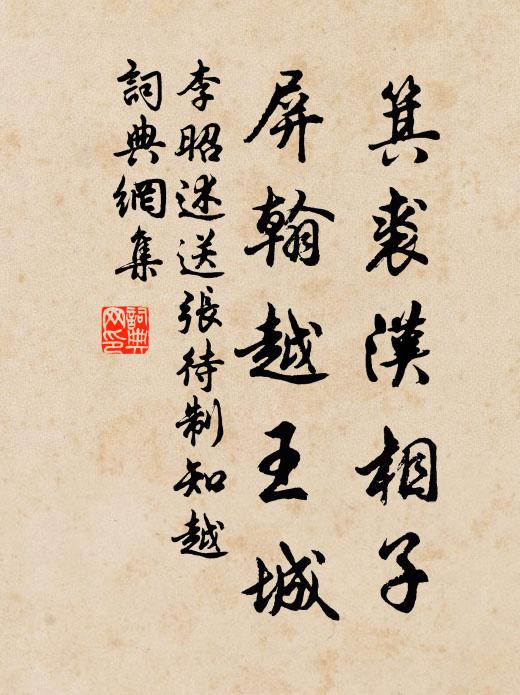 箕裘漢相子
屏翰越王城
李昭述送張待制知越
詞典網集
詞典网印